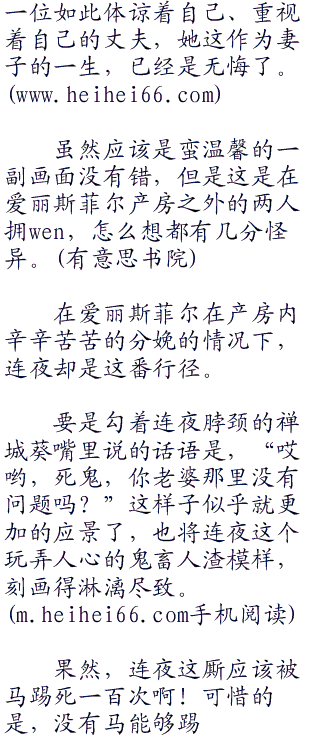 一位如此体谅着自己、重视
着自己的丈夫，她这作为妻
子的一生，已经是无悔了。
(www.heihei66.com)
虽然应该是蛮温馨的一
副画面没有错，但是这是在
爱丽斯菲尔产房之外的两人
拥wen，怎么想都有几分怪
异。(有意思书院)
在爱丽斯菲尔在产房内
辛辛苦苦的分娩的情况下，
连夜却是这番行径。
要是勾着连夜脖颈的禅
城葵嘴里说的话语是，“哎
哟，死鬼，你老婆那里没有
问题吗？”这样子似乎就更
加的应景了，也将连夜这个
玩弄人心的鬼畜人渣模样，
刻画得淋漓尽致。
(m.heihei66.com手机阅读)
果然，连夜这厮应该被
马踢死一百次啊！可惜的
是，没有马能够踢